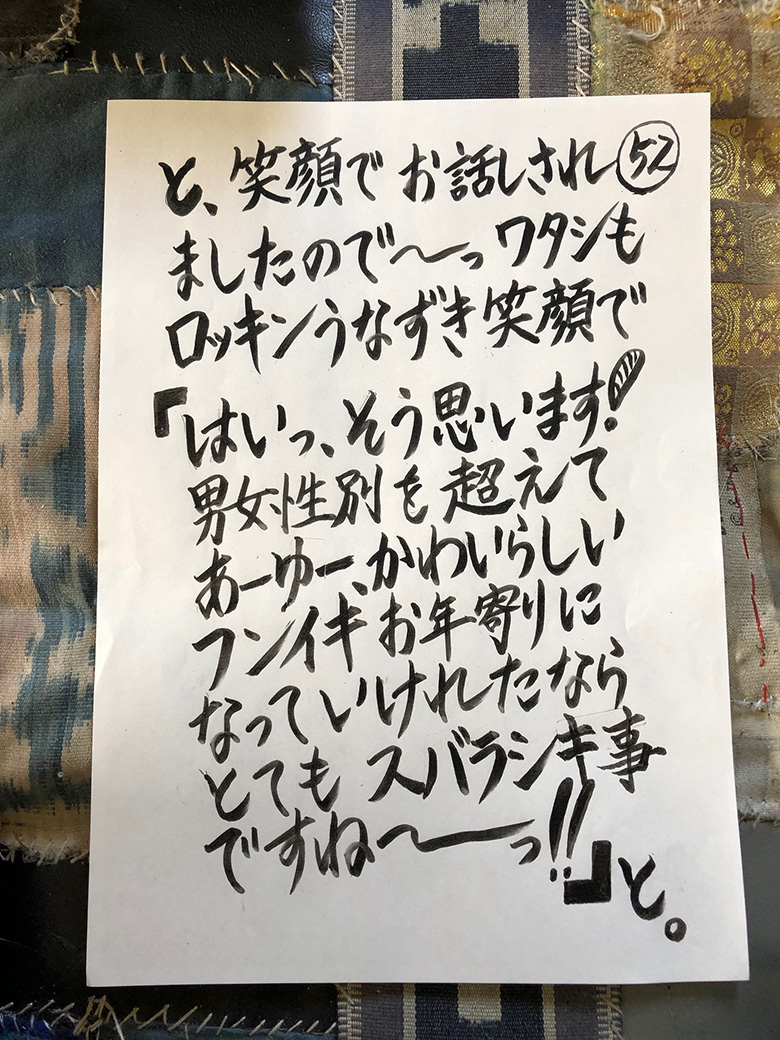 と、笑顔でお話しされ㊾
ましたので〜っワタシも
ロッキンうなずき笑顔で
『はいっ、そう思います!
男女性別を超えて
あーゆー、かわいらしい
フンイギお年寄りに
なっていけれたなら
とてもスバラシキ事
ですね〜っ!!』と。